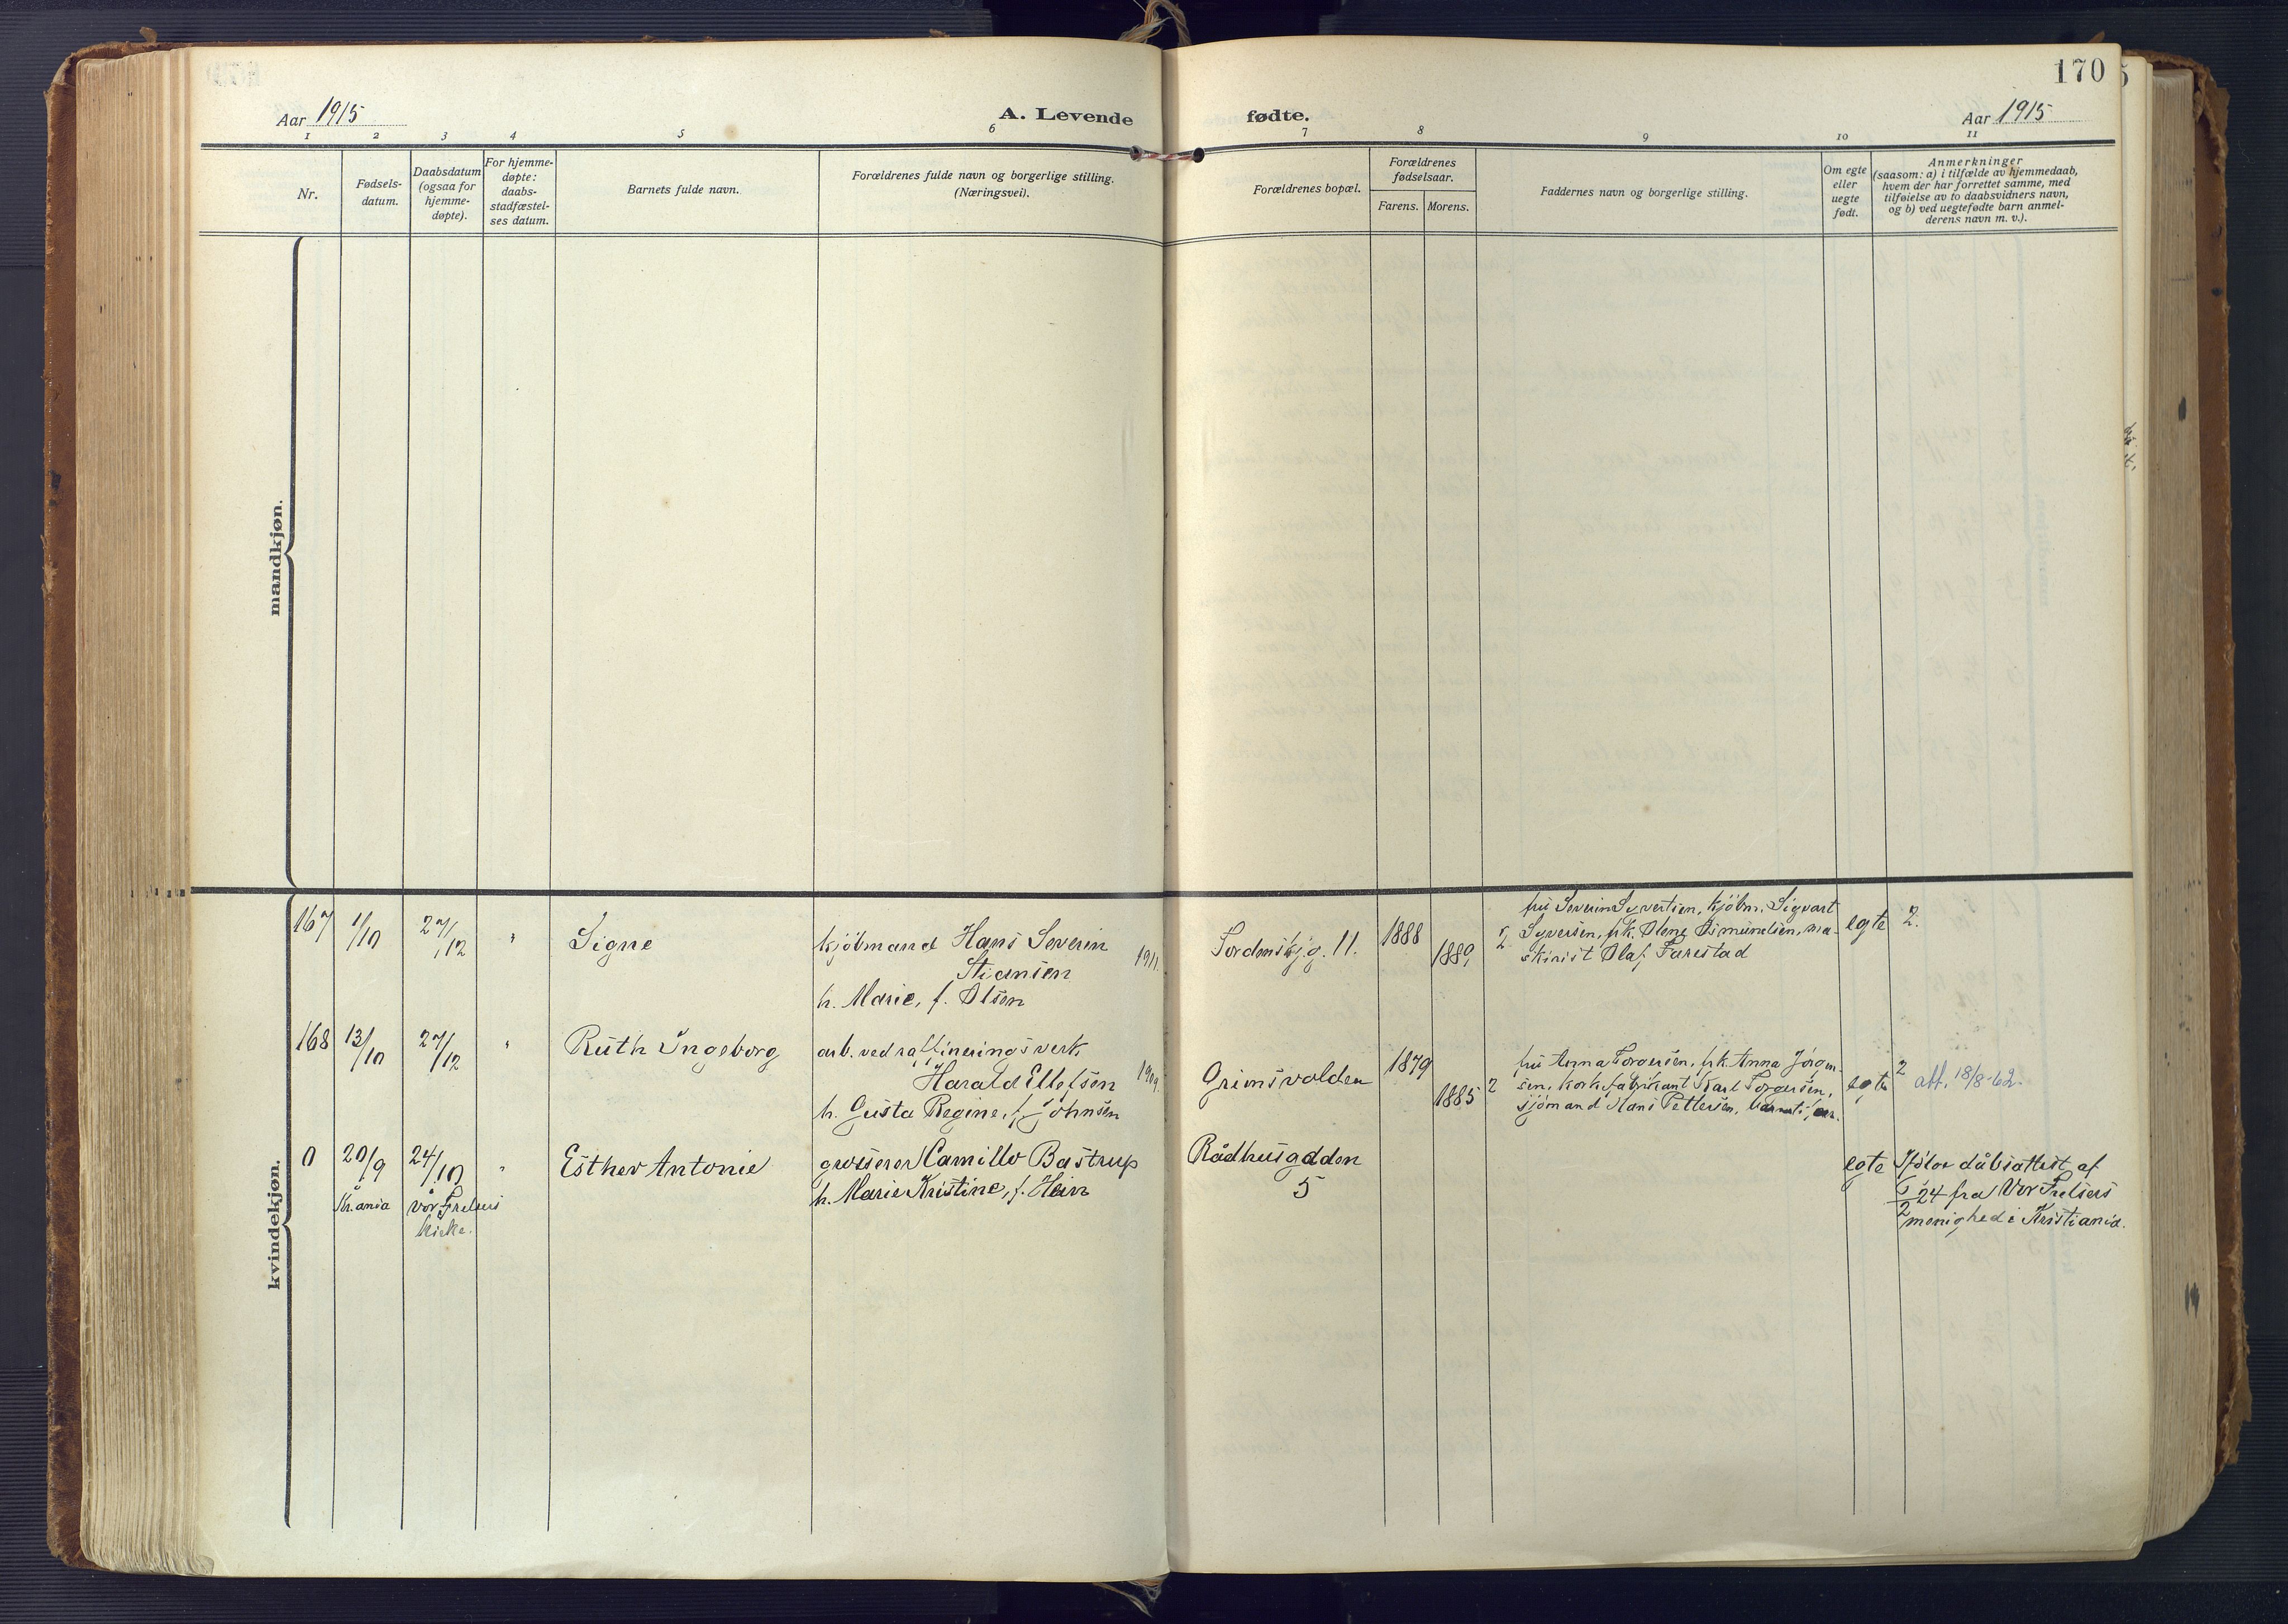 170
Aar 1915
A. Levende
fødte.
Aar 1915
1 2 3 4 5 6 7 8 9 10 11
Nr.
Fødsels-
datum.
Daabsdatum
(ogsaa for
hjemme-
døpte).
For hjemme-
døpte:
daabs-
stadfæstel-
ses datum.
Barnets fulde navn.
Forældrenes fulde navn og borgerlige stilling.
(Næringsvei).
Forældrenes bopæl.
Forældrenes
fødselsaar.
Farens. Morens.
Faddernes navn og borgerlige stilling.
Om egte
eller
uegte
født.
Anmerkninger
(saasom: a) i tilfælde av hjemmedaab,
hvem der har forrettet samme, med
tilføielse av to daabsvidners navn,
og b) ved uegtefødte barn anmel-
derens navn m. v.).
mandkjøn.
kvindekjøn.
167 1/10 27/12 " Signe
kjöbmand Hans Severin
Stiansen 1911.
h. Marie, f. Olsen
11. 1888 1889
fru Severin Syvertsen, kjöbm. Sigvart
Syversen, frk. Olene ma-
skinist Olaf
egte 2.
168 13/10 27/12 " Ruth Ingeborg
arb. ved raffineringsverk,
Harald Ellefsen 1909.
h. Gusta Regine, f. Johnsen
Grimsvolden 1879 1885 2
fru Anna Torgersen, frk. Anna Jörgen-
sen, korkfabrikant Karl Torgersen,
sjömand Hans Pettersen,
egte 2 att. 18/8-62.
0 20/9 24/10 " Esther Antonie
Kr.ania
vår Frelsers
kirke.
grosserer Camillo Bastrup
h. Marie Kristine, f. Hein
Rådhusgaden
5
egte Ifölge dåbsattest af
24 fra Vor Frelsers
menighed i Kristiania.